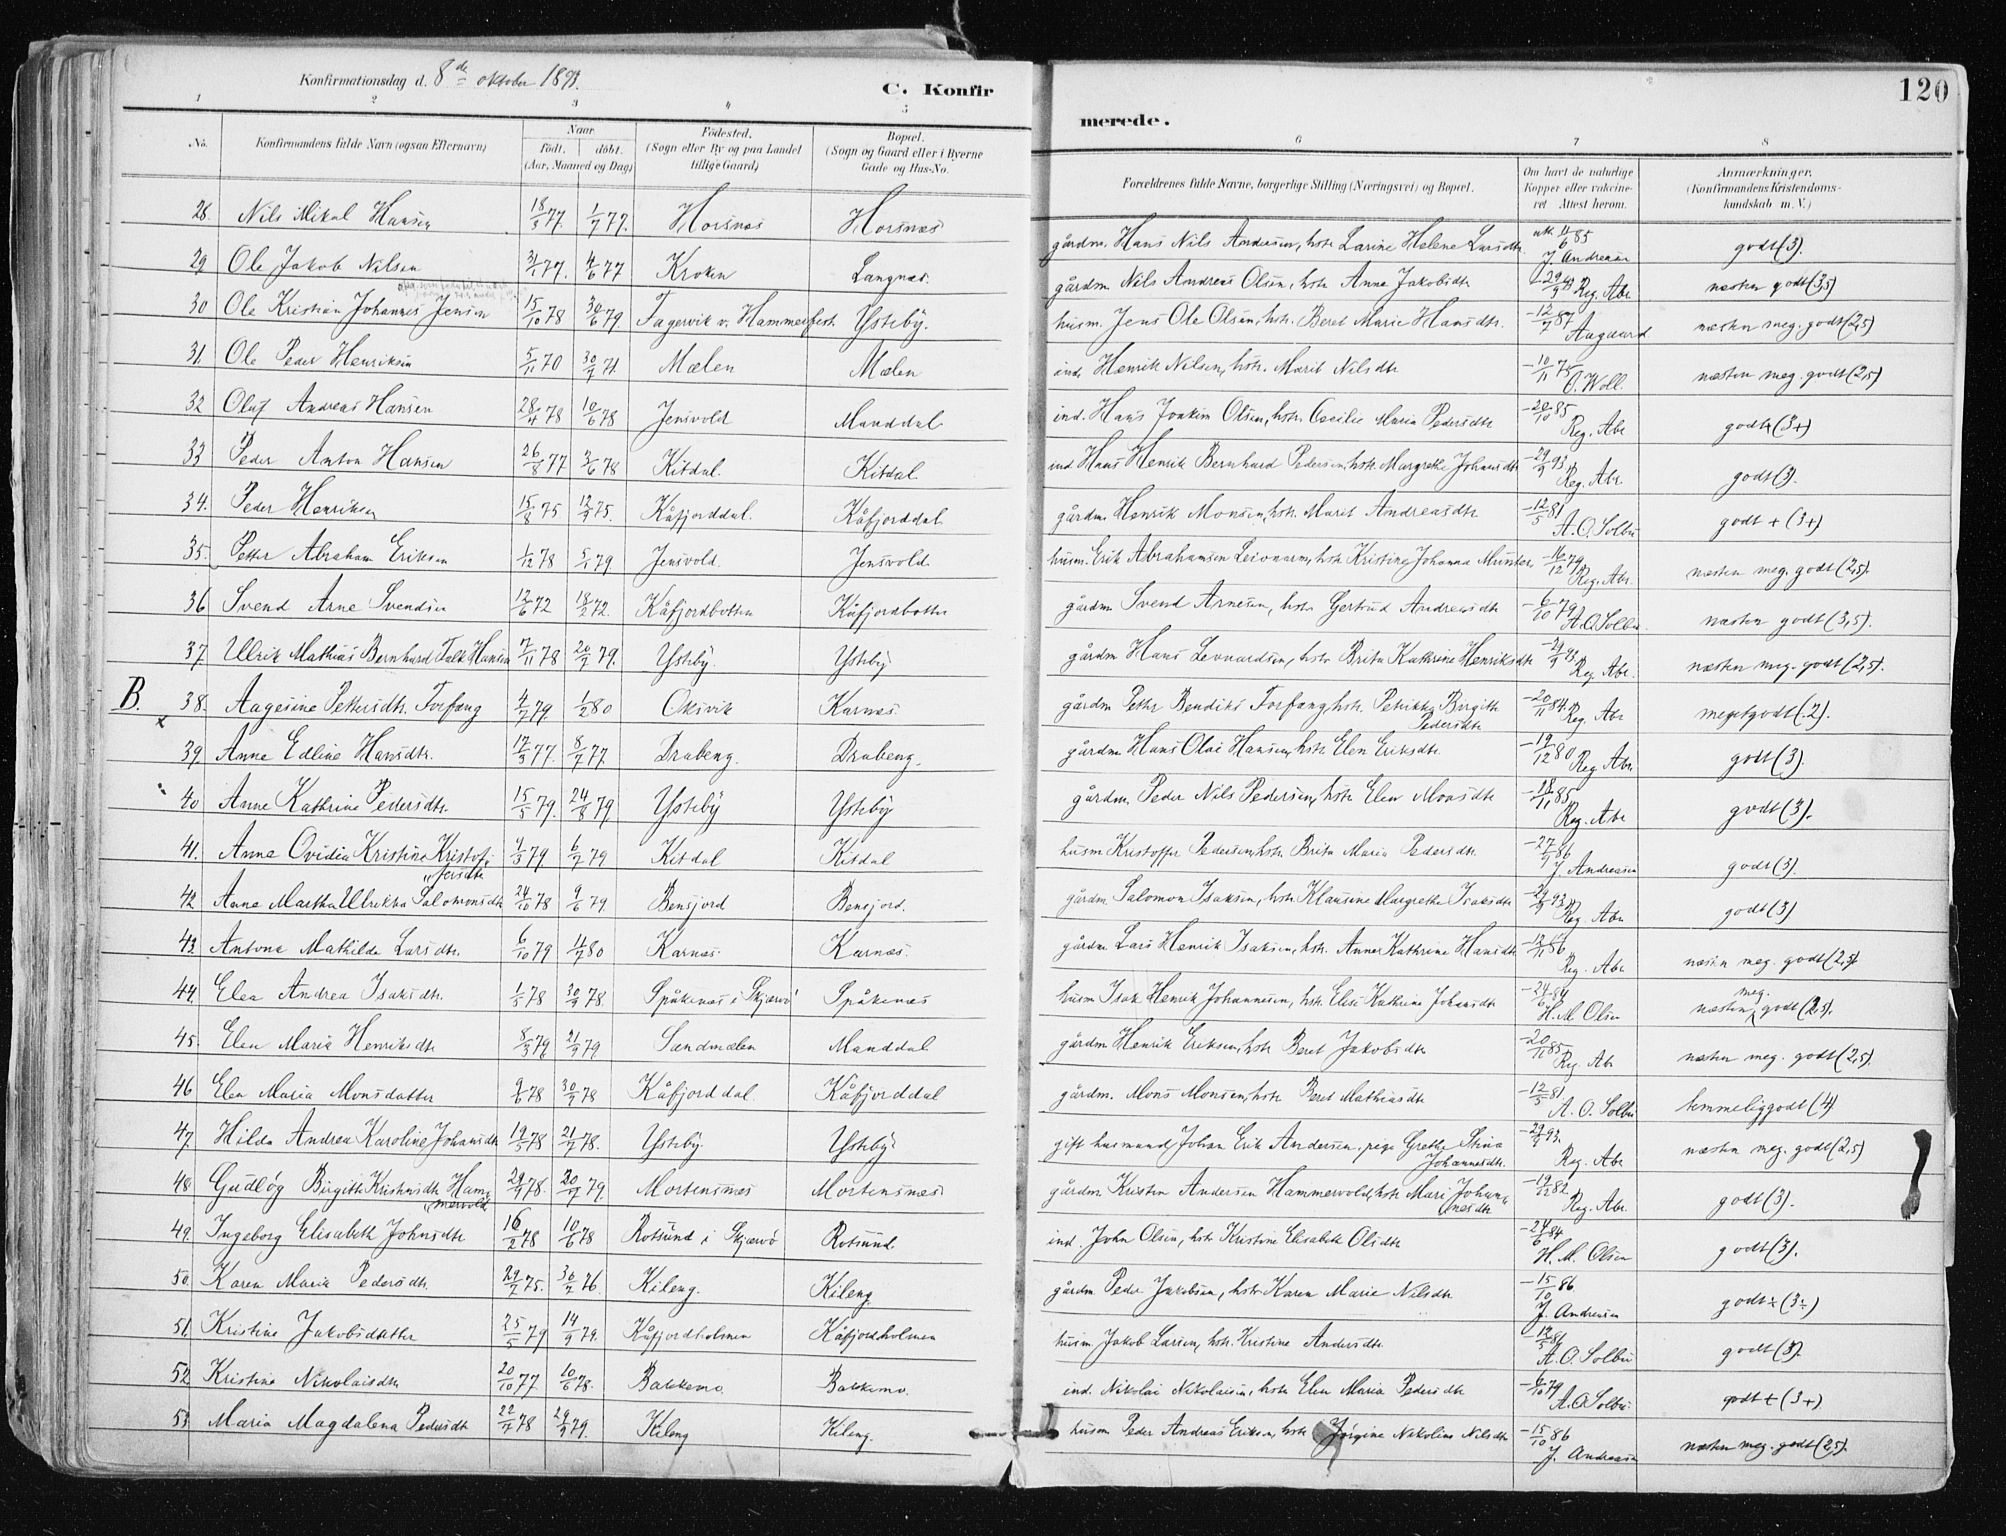 Konfirmationsdag d. 8de oktober 1893.
C. Konfirmerede.
120
1 2 3 " 5 6 7 8
No. Konfirmandens fulde Navn (ogsaa Efternavn) Naar Födt. döbt. (Aar, Maaned og Dag) Födested. (Sogn eller By og paa Landet tillige Gaard) Bopæl. (Sogn og Gaard eller i Byerne Gade og Hus-No. Forældrenes fulde Navne, borgerlige Stilling (Næringsvei) og Bopæl. Om havt de naturlige Kopper eller vaccineret. Attest herom. Anmærkninger. (Konfirmandens Kristendomskundskab m. V.)
28. Nils Mikal Hansen 18/3 77. 1/7 77. Horsnæs Horsnæs gårdm. Hans Nils Andersen, hstr. Larine Helene Larsdtr. att. 11/6 85 J. Andreasen godt (3).
29 Ole Jakob Nilsen 3/1 77. 4/6 77 Kroken Langnæs. gårdm Nils Andreas Olsen, hstr. Anne Jakobsdtr. -29/9 93 Reg. Abr næsten godt (3,5)
30 Ole Kristian Johannes Jensen 15/10 78 30/6 79 Fagervik v. Hammerfest. Ysteby. husm. Jens Ole Olsen, hstr. Beret Marie Hansdtr. -12/7 87 Aagaard næsten meg. godt (2,5)
31. Ole Peder Henriksen 5/11 70 30/7 71. Mælen Mælen ind. Henrik Nilsen, hstr. Marit Nilsdtr -10/11 75 O. Woll. næsten meg. godt (2,5)
32 Oluf Andreas Hansen 28/4 78 10/6 78 Jensvold Manddal ind. Hans Joakim Olsen, hstr. Cecilie Maria Pedersdtr -20/10 85 Reg. Abr godt+ (3+)
33 Peder Anton Hansen 26/8 77 3/6 78 Kitdal. Kitdal ind Hans Henrik Bernhard Pedersen, hstr. Margrethe Johansdtr -29/9 93 Reg. Abr. godt (3).
34. Peder Henriksen 15/8 75 12/9 75. Kåfjorddal. Kåfjorddal gårdm. Henrik Monsen, hstr. Marit Andreasdtr -12/5 81 A. O. Solbu godt + (3+)
35. Petter Abraham Eriksen 1/12 78 5/1 79 Jensvold. Jensvold. husm. Erik Abrahamsen Leivonarm, hstr Kristine Johanna Munster. -16/12 79 Reg. Abr. næsten meg. godt (2,5).
36 Svend Arne Svendsen 12/6 72 18/2 72. Kåfjordbotten Kåfjordbotten gårdm. Svend Arnesen, hstr Gertrud Andreasdtr -6/10 79 A. O. Solbu næsten godt (3,5).
37. Ulrik Mathias Bernhard Falk Hansen 7/11 78 20/7 79. Ysteby. Ysteby gårdm Hans Leonardsen, hstr Brita Kathrine Henriksdtr Reg. Abr. næsten meg. godt (2,5).
B. 38. Aagesine Pettersdtr. Forfang 4/7 79. 1/2 80 Oksvik Karnæs. gårdm Petter Bendiks Forfang, hstr. Petrikke Birgitte Pedersdtr -20/11 84 Reg. Abr megetgodt (2).
x 39. Anne Edline Hansdtr. 17/3 77. 8/7 77. Drabeng. Drabeng. gårdm Hans Olai Hansen, hstr Elen Eriksdtr. -19/12 80 Reg. Abr godt (3).
40 Anne Kathrine Pedersdtr. 15/5 79. 24/8 79 Ysteby Ysteby gårdm. Peder Nils Pedersen, hstr Elen Monsdtr -18/11 85 Reg. Abr godt (3).
41. Anne Ovidia Kristine Kristoffersdtr 4/3 79 6/7 79 Kitdal Kitdal husm Kristoffer Pedersen, hstr. Brita Maria Pedersdtr. -27/9 86 J. Andreasen godt (3).
42 Anne Martha Ulrikka Salomonsdtr 24/10 78 9/6 79. Bensjord Bensjord. gårdm. Salomon Isaksen, hstr Klausine Margrethe Isaksdtr -29/9 93 Reg. Abr godt (3)
43. Antona Mathilde Larsdtr. 6/10 79 11/7 80 Karnæs. Karnæs. gårdm Lars Henrik Isaksen, hstr. Anne Kathrine Hansdtr -12/11 86 Reg. Abr næsten meg. godt (2,5).
44. Elea Andrea Isaksdtr. 1/5 78 30/9 78. Spåkenæs i Skjærvö Spåkenæs husm Isak Henrik Johannesen, hstr. Elise Kathrine Johansdtr -24/6 84 H. M. Olsen næsten meg. godt (2,5).
45. Elen Maria Henriksdtr 8/3 79. 21/9 79 Sandmælen Manddal gårdm Henrik Eriksen, hstr Beret Jakobsdtr -20/11 85 Reg. Abr næsten meg. godt (2,5).
46 Elen Maria Monsdatter 9/6 78 30/9 78 Kåfjorddal. Kåfjorddal gårdm. Mons Monsen, hstr Beret Mathiasdtr -12/5 81 A. O. Solbu temmeliggodt (4)
47. Hilda Andrea Karoline Johansdtr 19/5 78 21/7 78. Ysteby. Ysteby. gift husmand Johan Erik Andersen. pige Grethe Stina Johannesdtr. -29/9 93. Reg. Abr næsten meg. godt (2,5)
48. Gudløg Birgitte Kristensdtr Hammervold 29/9 78. 20/7 79. Mortensnæs Mortensnæs gårdm. Kristen Andersen Hammervold, hstr Mari Johannesdtr -19/12 82 Reg. Abr. godt (3).
49. Ingeborg Elisabeth Johnsdtr 16/2 78 10/6 78 Rotsund i Skjærvö Rotsund. ind. John Olsen, hstr Kristine Elisabeth Olsdtr -24/6 84 H. M. Olsen godt (3).
50. Karen Marie Pedersdtr. 29/7 75. 30/7 76. Kileng. Kileng. gårdm Peder Jakobsen, hstr Karen Marie Nilsdtr -15/10 86 J Andreasen godt÷ (3÷)
51. Kristine Jakobsdatter 25/5 79 14/9 79. Kåfjordholmen Kåfjordholmen husm. Jakob Larsen, hstr. Kristine Andersdtr -12/5 81 A. O. Solbu godt (3).
52 Kristine Nikolaisdtr 20/10 77. 10/6 78. Bakkemo. Bakkemo. ind. Nikolai Nikolaisen, hstr Elen Maria Pedersdtr -6/10 79 A. O. Solbu. godt+ (3+)
53. Maria Magdalena Pedersdtr 22/7 78 29/9 79. Kileng Kileng. husm Peder Andreas Eriksen, hstr Jørgine Nikoline Nilsdtr -15/10 86 J. Andreasen næsten meg. godt (2,5).